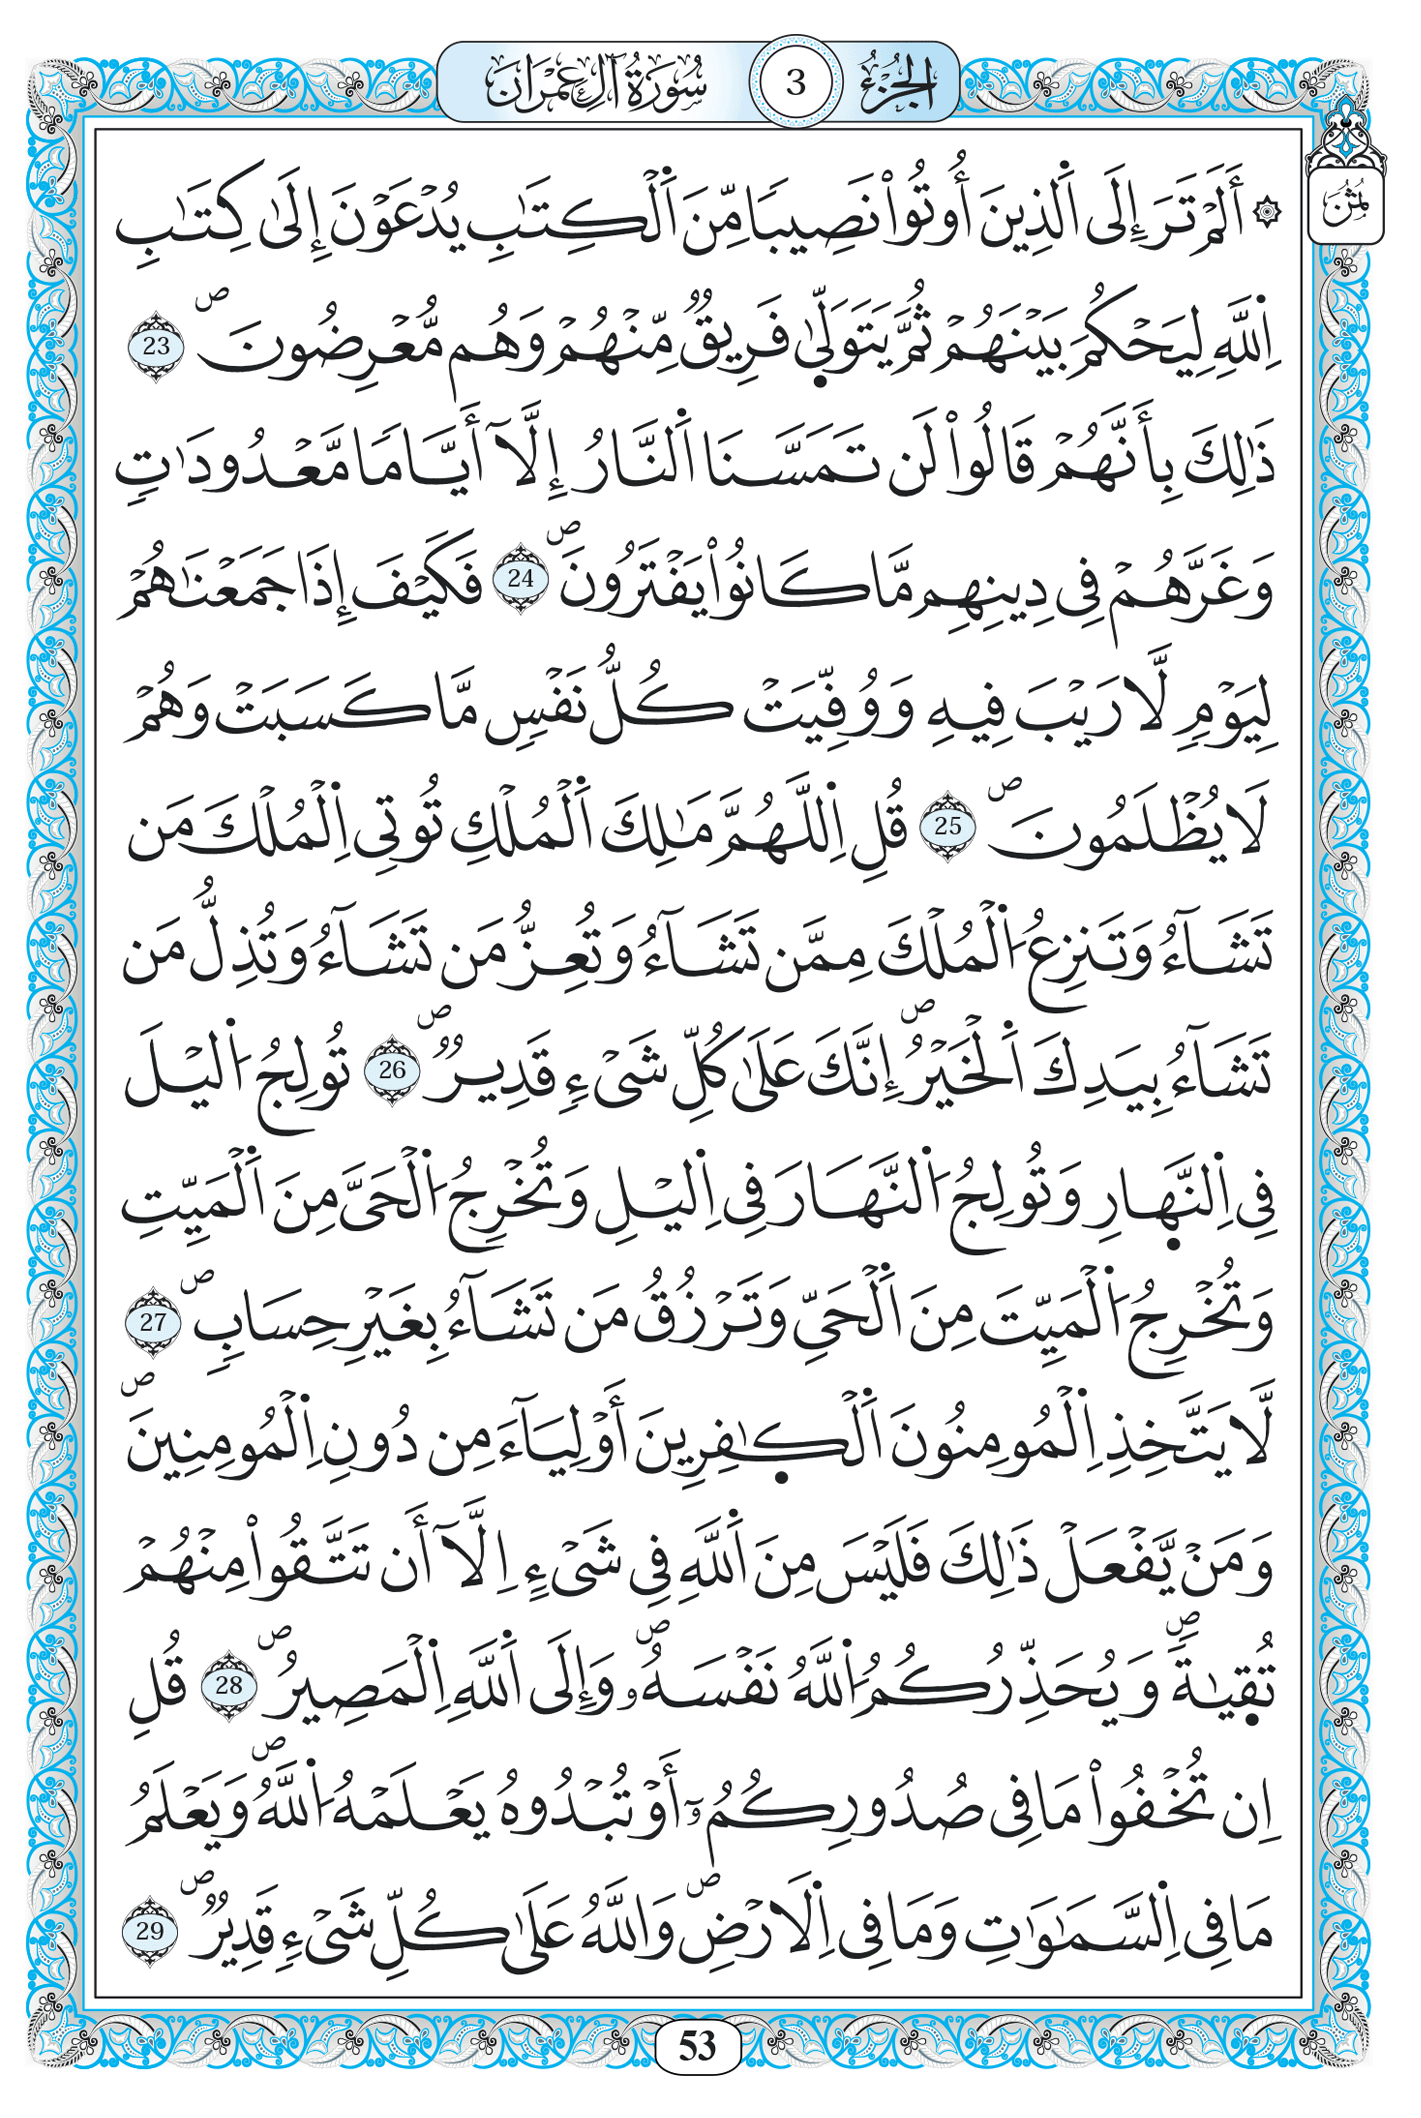 الجزء 3 سورة آل عمران
ثمن
۞ أَلَمْ تَرَ إِلَى اَ۬لذِينَ أُوتُواْ نَصِيباٗ مِّنَ اَ۬لْكِتَٰبِ يُدْعَوْنَ إِلَىٰ كِتَٰبِ
اِ۬للَّهِ لِيَحْكُمَ بَيْنَهُمْ ثُمَّ يَتَوَلّ۪ىٰ فَرِيقٞ مِّنْهُمْ وَهُم مُّعْرِضُونَۖ 23
ذَٰلِكَ بِأَنَّهُمْ قَالُواْ لَن تَمَسَّنَا اَ۬لنَّارُ إِلَّآ أَيَّاماٗ مَّعْدُودَٰتٖ
وَغَرَّهُمْ فِى دِينِهِم مَّا كَانُواْ يَفْتَرُونَۖ 24 فَكَيْفَ إِذَا جَمَعْنَٰهُمْ
لِيَوْمٖ لَّا رَيْبَ فِيهِ وَوُفِّيَتْ كُلُّ نَفْسٖ مَّا كَسَبَتْ وَهُمْ
لَا يُظْلَمُونَۖ 25 قُلِ اِ۬للَّهُمَّ مَٰلِكَ اَ۬لْمُلْكِ تُوتِى اِ۬لْمُلْكَ مَن
تَشَآءُ وَتَنزِعُ اُ۬لْمُلْكَ مِمَّن تَشَآءُ وَتُعِزُّ مَن تَشَآءُ وَتُذِلُّ مَن
تَشَآءُ بِيَدِكَ اَ۬لْخَيْرُۖ إِنَّكَ عَلَىٰ كُلِّ شَىْءٖ قَدِيرٞۖ 26 تُولِجُ اُ۬ليْلَ
فِى اِ۬لنَّه۪ارِ وَتُولِجُ اُ۬لنَّهَارَ فِى اِ۬ليْلِ وَتُخْرِجُ اُ۬لْحَىَّ مِنَ اَ۬لْمَيِّتِ
وَتُخْرِجُ اُ۬لْمَيِّتَ مِنَ اَ۬لْحَىِّ وَتَرْزُقُ مَن تَشَآءُ بِغَيْرِ حِسَابٖۖ 27
لَّا يَتَّخِذِ اِ۬لْمُومِنُونَ اَ۬لْكٰ۪فِرِينَ أَوْلِيَآءَ مِن دُونِ اِ۬لْمُومِنِينَۖ
وَمَنْ يَّفْعَلْ ذَٰلِكَ فَلَيْسَ مِنَ اَ۬للَّهِ فِى شَىْءٍ اِلَّآ أَن تَتَّقُواْ مِنْهُمْ
تُق۪يٰةٗۖ وَيُحَذِّرُكُمُ اُ۬للَّهُ نَفْسَهُۥۖ وَإِلَى اَ۬للَّهِ اِ۬لْمَصِيرُۖ 28 قُلِ
اِن تُخْفُواْ مَا فِى صُدُورِكُمُۥٓ أَوْ تُبْدُوهُ يَعْلَمْهُ اُ۬للَّهُۖ وَيَعْلَمُ
مَا فِى اِ۬لسَّمَٰوَٰتِ وَمَا فِى اِ۬لَارْضِۖ وَاللَّهُ عَلَىٰ كُلِّ شَىْءٖ قَدِيرٞۖ 29
53